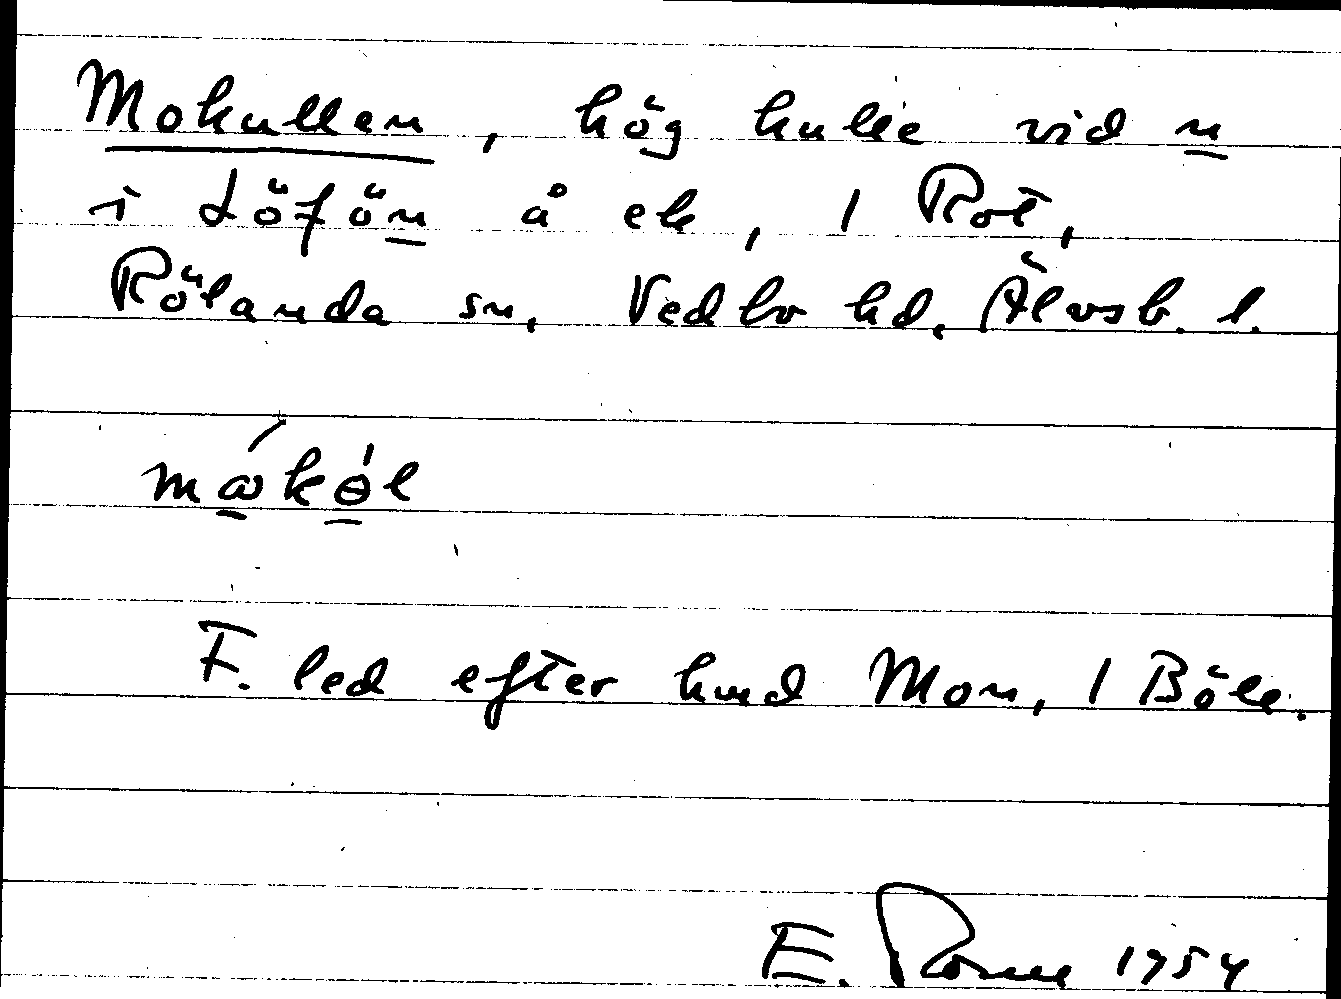 Mokullen, hög kulle vid n
i Löfön å ek, 1 Rot,
Rölanda sn, Vedbo hd, Älvsb. l.
F. led efter hmd Mon, 1 Böle.
E. 1954